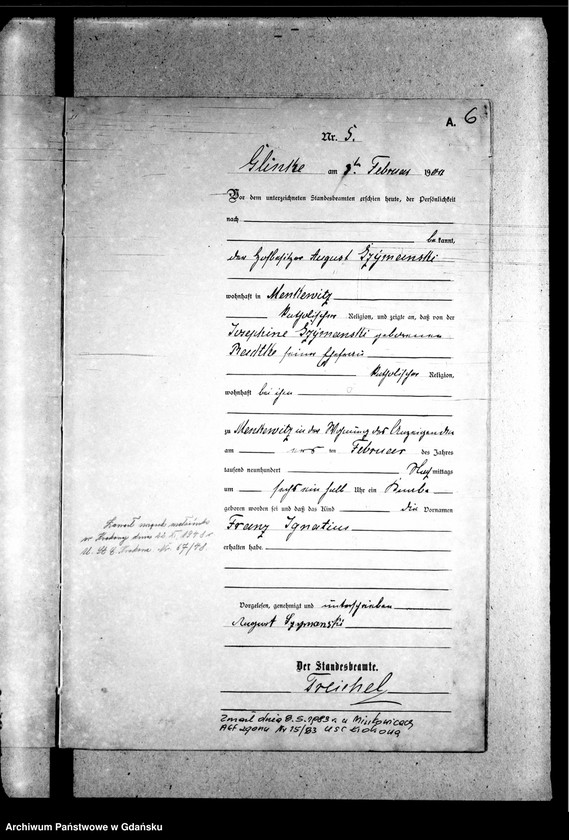 A. 6
Nr. 5.
Glinke am Februar 1900
Vor dem unterzeichneten Standesbeamten erschien heute, der Persönlichkeit
nach
bekannt,
der Hofbesitzer August Szymanski
wohnhaft in Menkewitz
katholischer Religion, und zeigte an, daß von der
Josephine Szymanski geborenen
seiner Ehefrau
katholischer Religion,
wohnhaft bei ihm
zu Menkewitz in der Wohnung des Anzeigenden
am ten Februar des Jahres
tausend neunhundert mittags
um sechs ein halb Uhr ein Knabe
geboren worden sei und daß das Kind die Vornamen
Franz Ignatius
erhalten habe.
Zawarł związek małżeński
w dnia
U. S. C. Nr. 67/48
Vorgelesen, genehmigt und unterschrieben
August Szymanski
Der Standesbeamte.
Treichel
Zmarł dnia 8.5.1983 r. w Miszkowicach
Akt zgonu Nr 15/83 USC
Archiwum Państwowe w Gdańsku